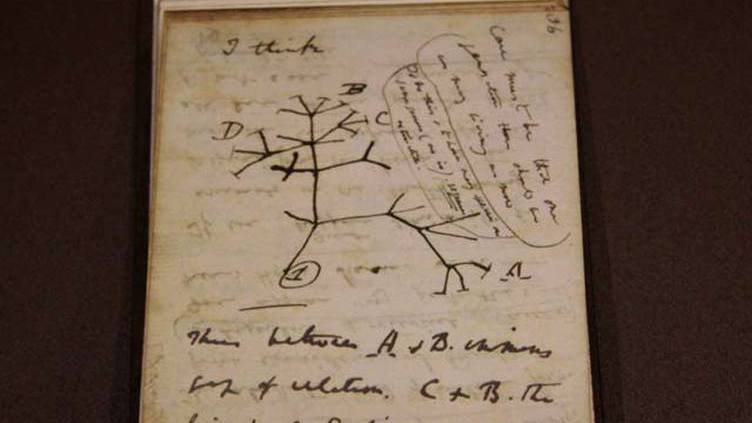 36
I think
Case must be that one
generation then should be
as many living as now
To do this & to have many species in
same genus (as is) requires
extinction
B
C
D
A
1
Thus between A & B. immense
gap of relation. C & B. the